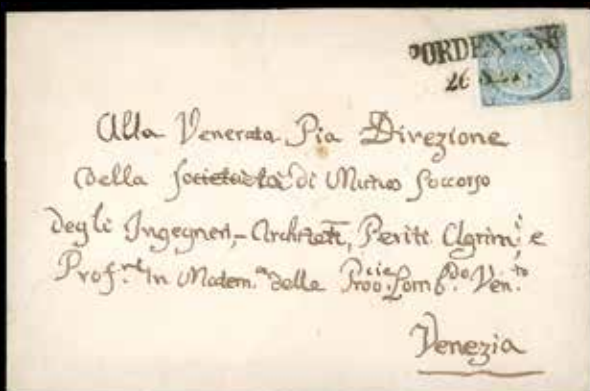 PORDENONE
26
Alla Venerata Pia Direzione
della Società di Mutuo Soccorso
degli Ingegneri, Architetti, Periti Agrimi e
Prof.ri in Matem.a della Provcie Lombdo Ven.to
Venezia